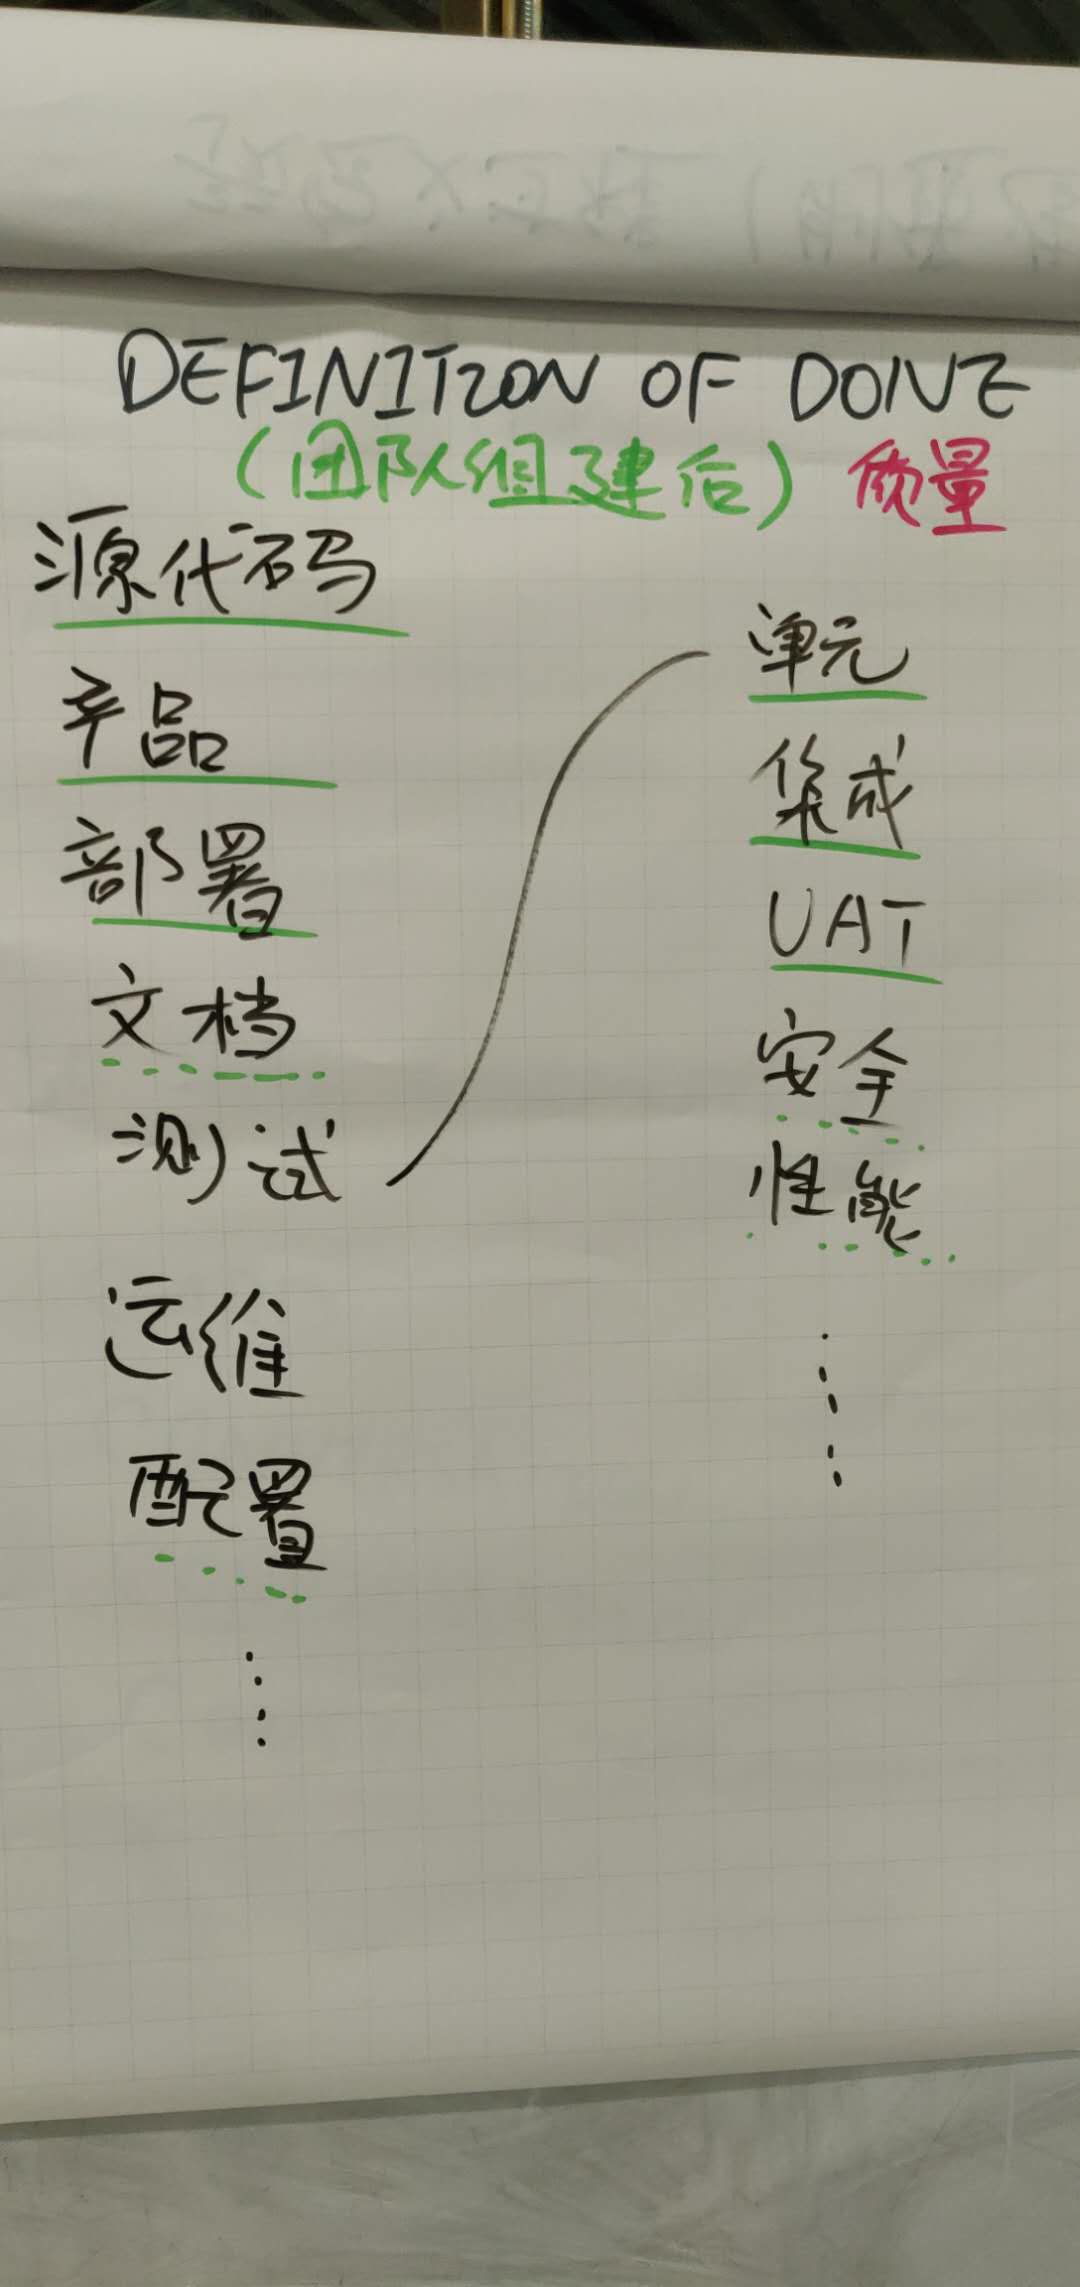 DEFINITION OF DONE
(团队组建后) 质量
源代码
产品
部署
文档
测试
运维
配置
单元
集成
UAT
安全
性能